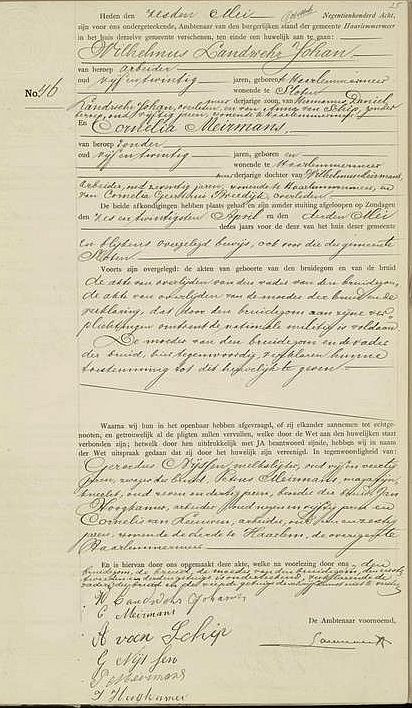 Heden den zesden Mei Negentienhonderd Acht,
zijn voor ons ondergeteekende, Ambtenaar van den burgerlijken stand der gemeente Haarlemmermeer
in het huis derzelve gemeente verschenen, ten einde een huwelijk aan te gaan:
Wilhelmus Landwehr Johan
van beroep arbeider
oud vijf en twintig jaren, geboren te Haarlemmermeer
wonende te Sloten
No. 46
meerderjarige zoon, van Hermanus Daniel
Landwehr Johan, overleden, en van Anna van Schip, zonder
beroep, oud vijftig jaren, wonende te Haarlemmermeer
En Cornelia Meirmans
van beroep zonder
oud vijf en twintig jaren, geboren en
wonende te Haarlemmermeer
meerderjarige dochter van Wilhelmus Meirmans,
arbeider, oud jaren, wonende te Haarlemmermeer, en
van Cornelia overleden
De beide afkondigingen hebben plaats gehad en zijn zonder stuiting afgeloopen op Zondagen
den zes en twintigsten April en den derden Mei
dezes jaars voor de deur van het huis dezer gemeente
en blijkens overgelegd bewijs, ook voor die der gemeente
Sloten
Voorts zijn overgelegd: de akten van geboorte van den bruidegom en van de bruid
de akte van overlijden van den vader van den bruidegom,
de akte van overlijden van de moeder der bruid en de
verklaring, dat door den bruidegom aan zijne ver-
plichtingen omtrent de nationale militie is voldaan
De moeder van den bruidegom en de vader
der bruid, hier tegenwoordig, verklaren hunne
toestemming tot dit huwelijk te geven
Waarna wij hun in het openbaar hebben afgevraagd, of zij elkander aannemen tot echtge-
nooten, en getrouwelijk al de pligten zullen vervullen, welke door de Wet aan den huwelijken staat
verbonden zijn; hetwelk door hen uitdrukkelijk met JA beantwoord zijnde, hebben wij in naam
der Wet uitspraak gedaan dat zij door het huwelijk zijn vereenigd. In tegenwoordigheid van:
Gerardus Nijssen, oud vijf en veertig
jaren, zwager der bruid, Petrus Meirmans,
knecht, oud zeven en dertig jaren, broeder der bruid, Jan
Hoogkamer, arbeider, oud negen en vijftig jaren en
Cornelis van Leeuwen, arbeider, oud en zestig
jaren, wonende de derde te Haarlem, de overigen te
Haarlemmermeer
En is hiervan door ons opgemaakt deze akte, welke na voorlezing door ons, den
bruidegom, de bruid, de moeder van den bruidegom, den eerste
W Landwehr Johan
C Meirmans
A van Schip
G Nijssen
P Meirmans
J Hoogkamer
De Ambtenaar voornoemd,